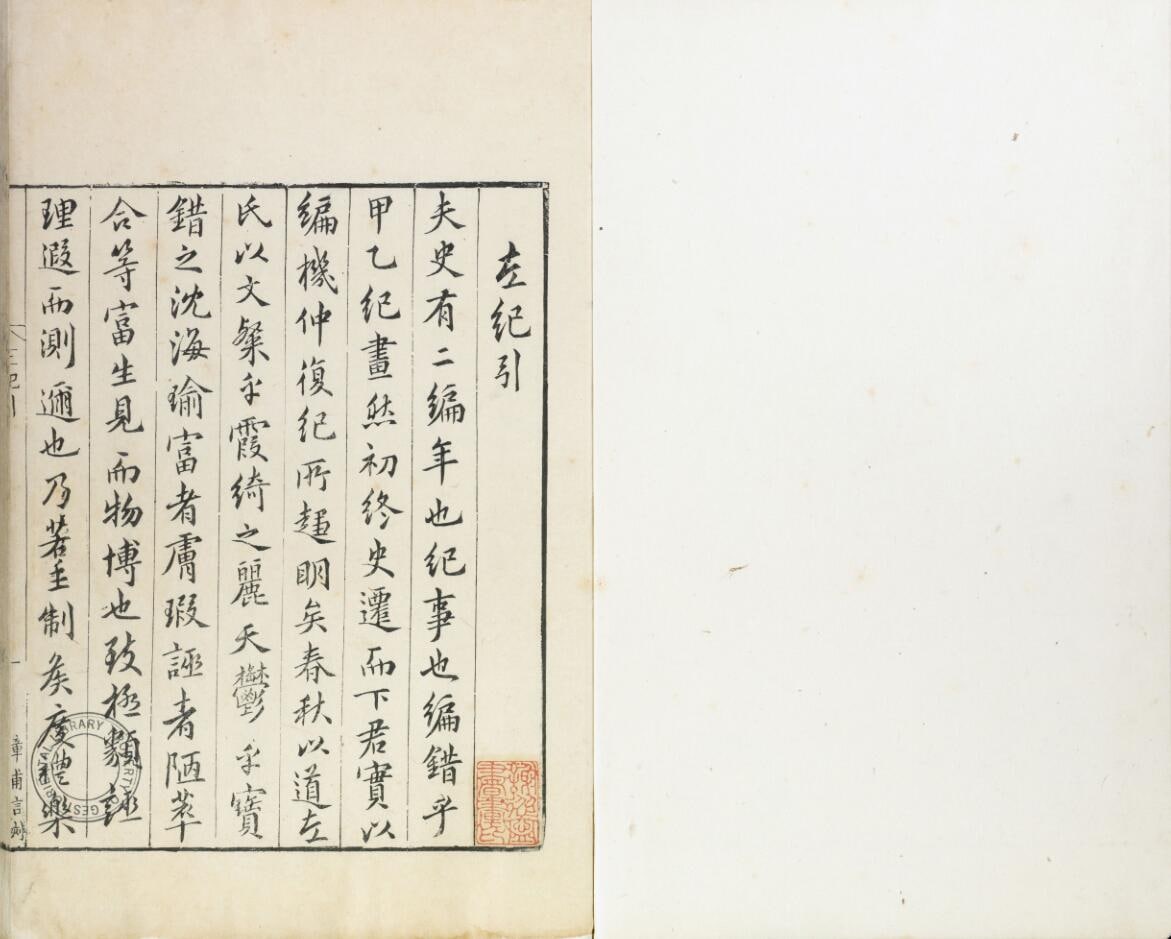 左紀引
夫史有二編年也紀事也編錯乎
甲乙紀畫然初終史遷而下君實以
編機仲復紀所趣明矣春秋以道左
氏以文粲乎霞綺之麗天鬱乎寶
錯之沈海瑜富者膚瑕誣者陋萃
合等富生見而物博也致極類誣
理遐而測邇也乃若王制矦度禮樂
章甫言
LIBRARY